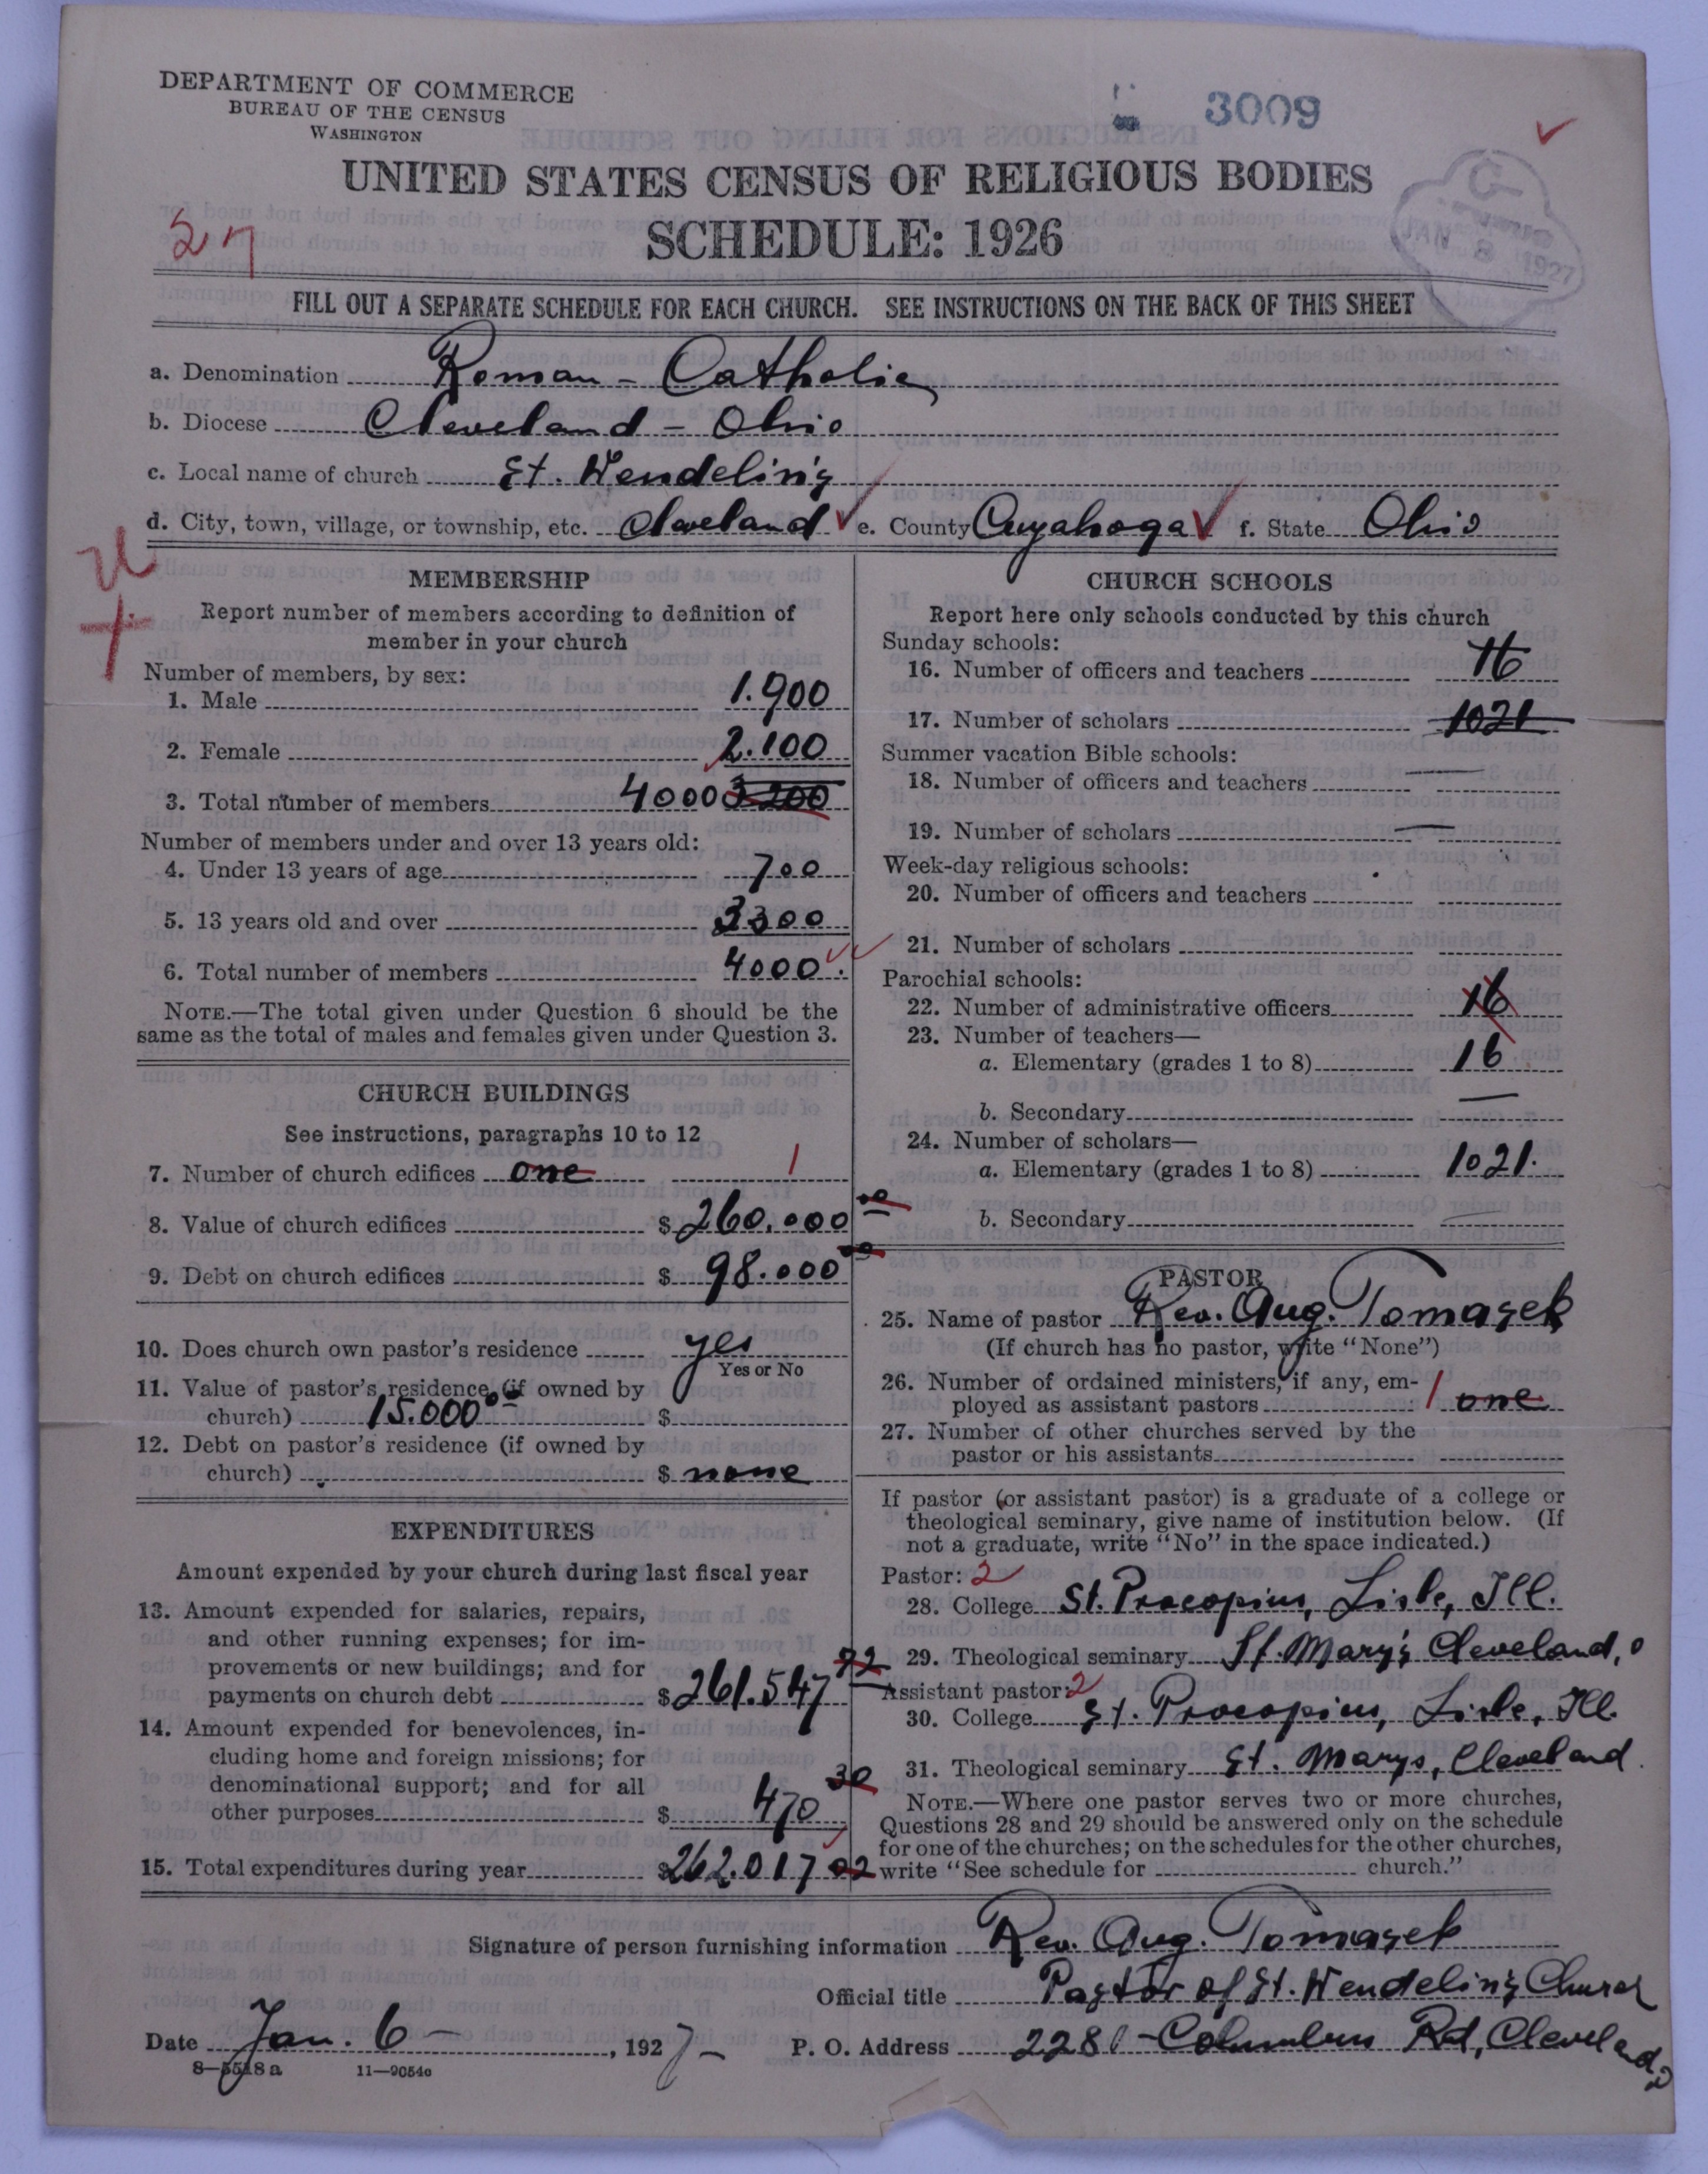 DEPARTMENT OF COMMERCE
BUREAU OF THE CENSUS
WASHINGTON
3009
UNITED STATES CENSUS OF RELIGIOUS BODIES
SCHEDULE: 1926
27
JAN 8 1927
FILL OUT A SEPARATE SCHEDULE FOR EACH CHURCH. SEE INSTRUCTIONS ON THE BACK OF THIS SHEET
a. Denomination Roman - Catholic
b. Diocese Cleveland - Ohio
c. Local name of church St. Wendelin's
d. City, town, village, or township, etc. Cleveland e. County Cuyahoga f. State Ohio
MEMBERSHIP
Report number of members according to definition of
member in your church
Number of members, by sex:
1. Male 1.900
2. Female 2.100
3. Total number of members 4000 3200
Number of members under and over 13 years old:
4. Under 13 years of age 700
5. 13 years old and over 3300
6. Total number of members 4000.
NOTE.—The total given under Question 6 should be the
same as the total of males and females given under Question 3.
CHURCH BUILDINGS
See instructions, paragraphs 10 to 12
7. Number of church edifices one 1
8. Value of church edifices $ 260.000 00
9. Debt on church edifices $ 98.000 00
10. Does church own pastor's residence yes
Yes or No
11. Value of pastor's residence (if owned by
church) 15.000 $
12. Debt on pastor's residence (if owned by
church) $ none
EXPENDITURES
Amount expended by your church during last fiscal year
13. Amount expended for salaries, repairs,
and other running expenses; for im-
provements or new buildings; and for
payments on church debt $ 261.547 72
14. Amount expended for benevolences, in-
cluding home and foreign missions; for
denominational support; and for all
other purposes $ 470 30
15. Total expenditures during year $ 262.017 02
CHURCH SCHOOLS
Report here only schools conducted by this church
Sunday schools:
16. Number of officers and teachers 16
17. Number of scholars 1021
Summer vacation Bible schools:
18. Number of officers and teachers —
19. Number of scholars —
Week-day religious schools:
20. Number of officers and teachers
21. Number of scholars
Parochial schools:
22. Number of administrative officers 16
23. Number of teachers—
a. Elementary (grades 1 to 8) 16
b. Secondary —
24. Number of scholars—
a. Elementary (grades 1 to 8) 1021.
b. Secondary —
PASTOR
25. Name of pastor Rev. Aug. Tomasek
(If church has no pastor, write "None")
26. Number of ordained ministers, if any, em-
ployed as assistant pastors 1 one
27. Number of other churches served by the
pastor or his assistants
If pastor (or assistant pastor) is a graduate of a college or
theological seminary, give name of institution below. (If
not a graduate, write "No" in the space indicated.)
Pastor: 2
28. College St. Procopius, Lisle, Ill.
29. Theological seminary St. Mary's Cleveland, O
Assistant pastor: 2
30. College St. Procopius, Lisle, Ill.
31. Theological seminary St. Marys, Cleveland.
NOTE.—Where one pastor serves two or more churches,
Questions 28 and 29 should be answered only on the schedule
for one of the churches; on the schedules for the other churches,
write "See schedule for church."
Signature of person furnishing information Rev. Aug. Tomasek
Official title Pastor of St. Wendelin's Church
Date Jan. 6 -, 1927 - P. O. Address 2281 - Columbus Rd, Cleveland, O
8—5518 a 11—9054a